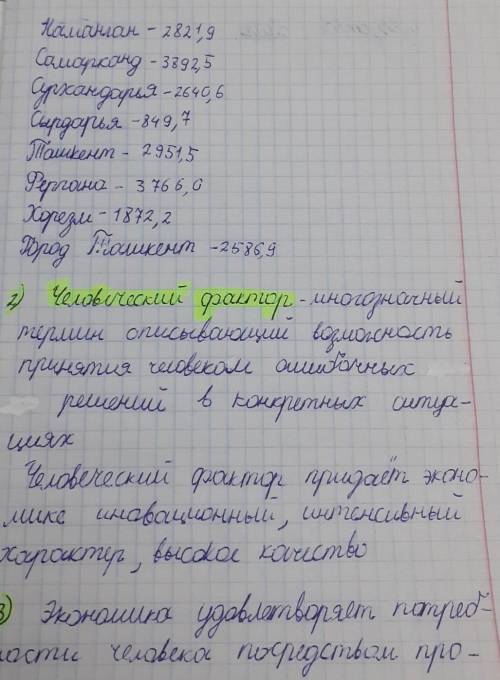 Наманган - 2821,9
Самарканд - 3892,5
Сурхандарья - 2640,6
Сырдарья - 849,7
Ташкент - 2951,5
Фергана - 3766,0
Хорезм - 1872,2
Город Ташкент - 2586,9
2) Человеческий фактор - многозначный
термин описывающий возможность
принятия человеком ошибочных
решений в конкретных ситуа-
циях
Человеческий фактор придаёт эконо-
мике иновационный, интенсивный
характер, высокое качество
3) Экономика удовлетворяет потреб-
ности человека посредством про-